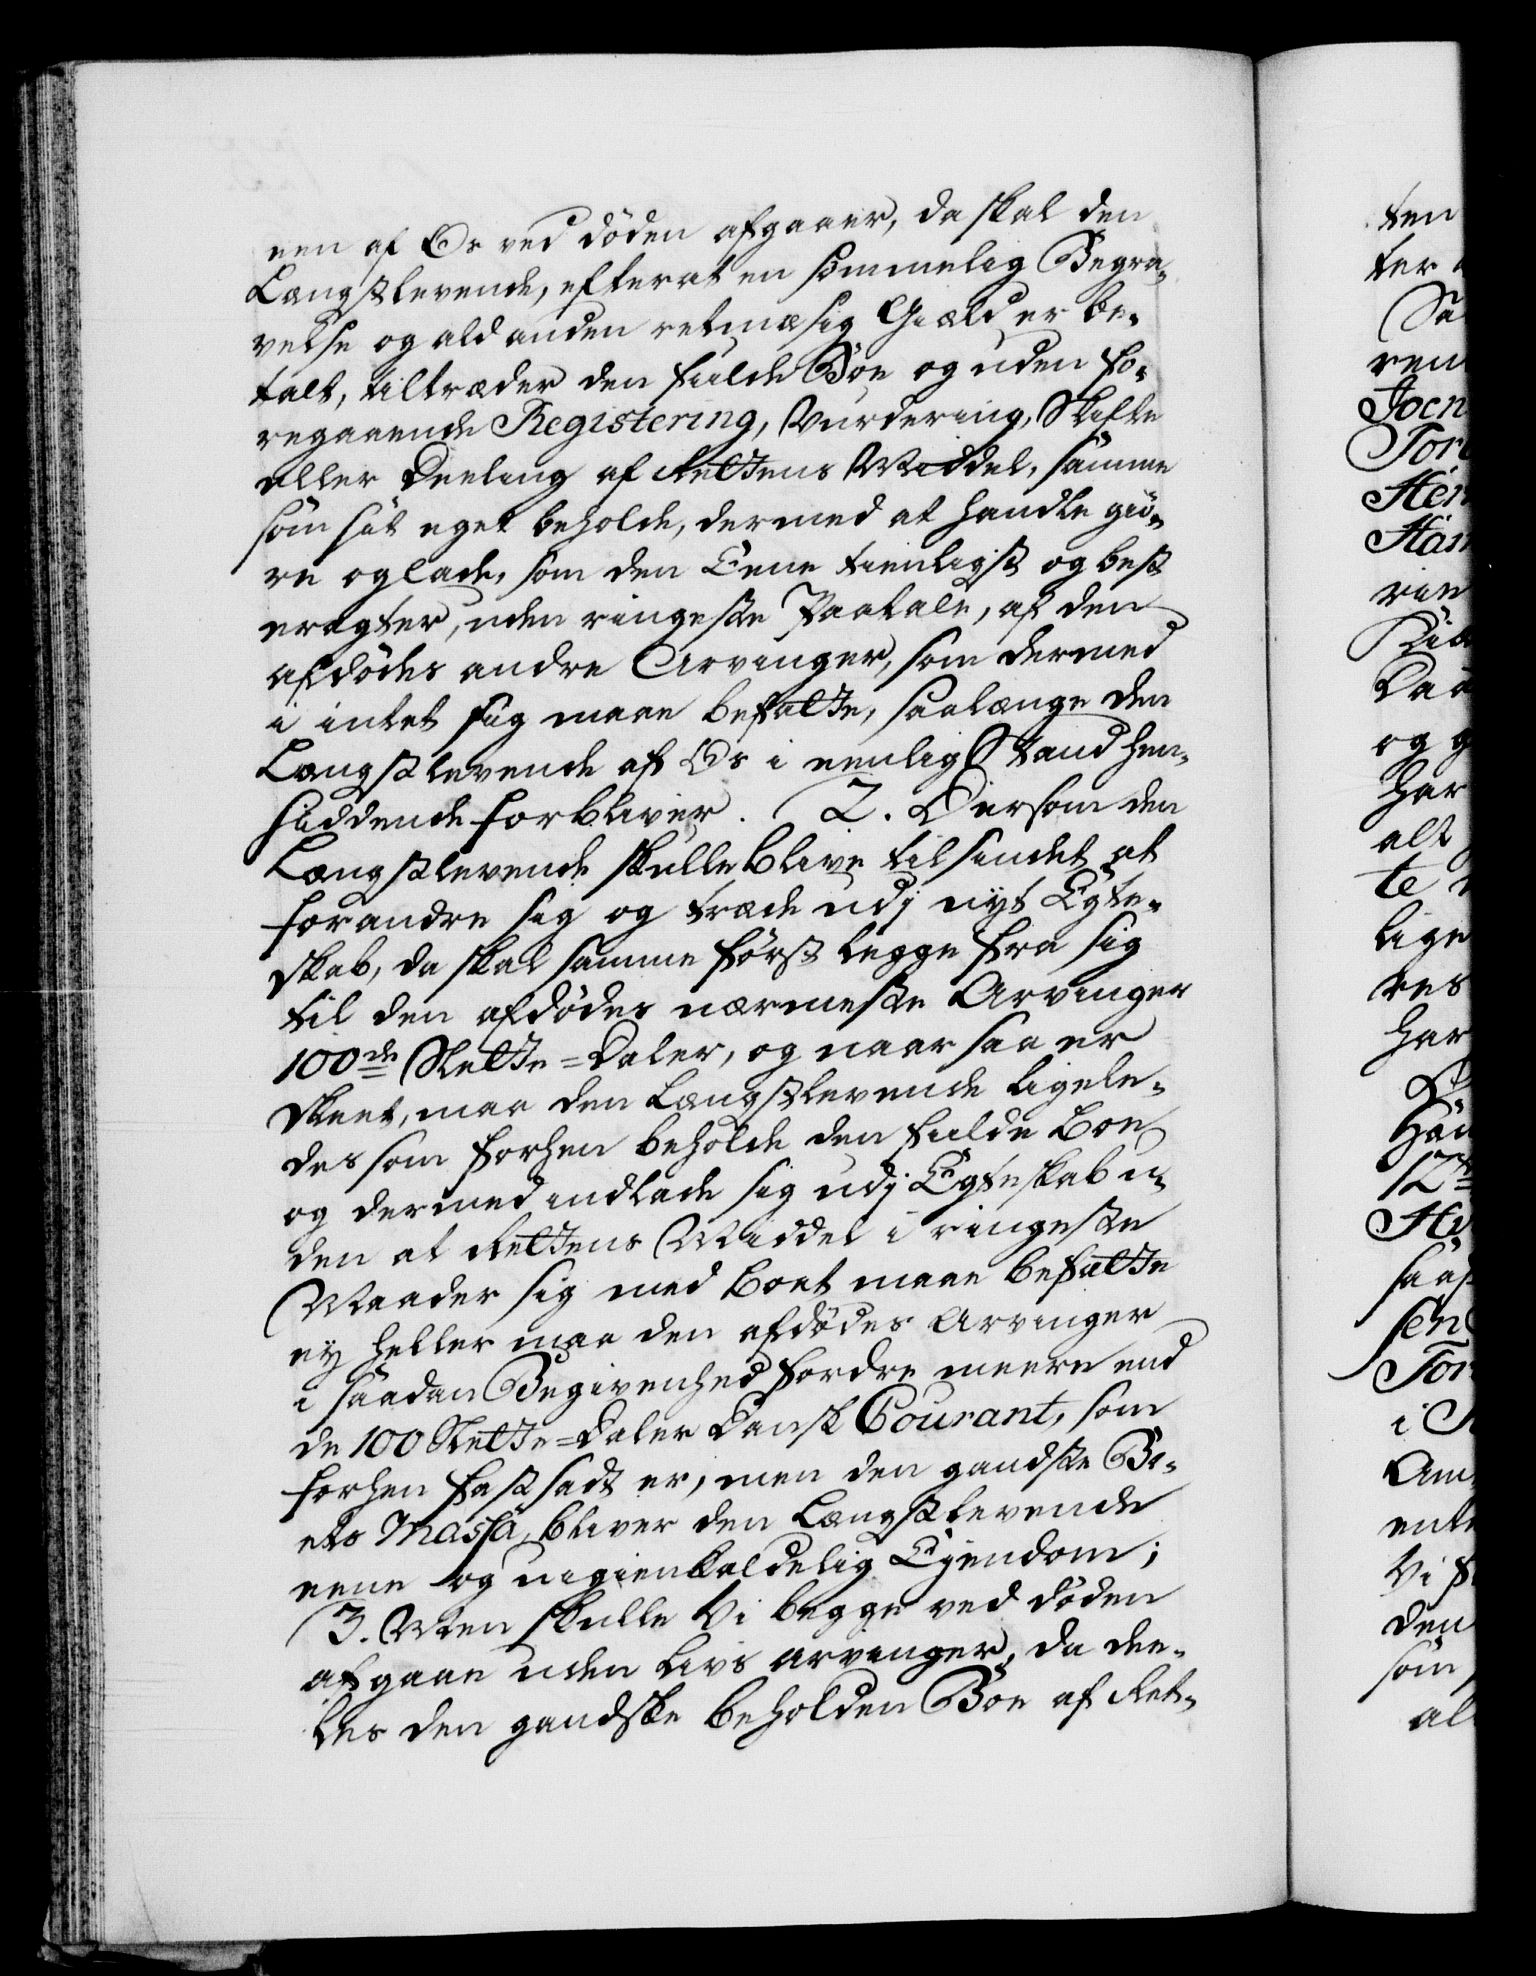 een af Os ved döden afgaaer, da skal den
Længstlevende, efterat en sömmelig Begra-
velse og ald anden retmæsig Gield er be-
talt, tiltræder den fulde Boe og uden fo-
regaaende Registering, Vurdering, Skifte
eller Deeling af Rettens Middel, samme
som sit eget beholde, dermed at handle giö-
re og lade, som den Eene tienligst og best
eragter, uden ringeste Paatale, af den
afdödes andre Arvinger, som dermed
i intet sig maae befatte, saalænge den
Længstlevende af Os i eenlig Stand hen-
siddende forbliver. 2. Dersom den
Længstlevende skulle blive tilsindet at
forandre sig og træde udj nyt Egte-
skab, da skal samme först legge fra sig
til den afdödes nærmeste Arvinger
100de Slette=Daler, og naar saa er
skeet, maa den Længstlevende ligele-
des som forhen beholde den fulde Boe
og dermed indlade sig udj Egteskab u-
den at Rettens Middel i ringeste
Maader sig med Boet maae befatte
ey heller maa den afdödes Arvinger
i saadan Begivenhed fordre meere end
de 100 Slette=Daler Dansk Courant, som
forhen fastsadt er, men den gandske Bo-
ets Massa, bliver den Længstlevende
eene og uigienkaldelig Ejendom;
3. Men skulle Vi begge ved döden
afgaae uden livs arvinger, da dee-
les den gandske beholden Boe af Ret-
ten
ter
Sa
ren
Joen
Tor
Hen
Han
rie
Daa
og g
har
alt
te
lige
res
har
12
saa
sen
Tor
i
Am
ente
Vi f
den
som
al